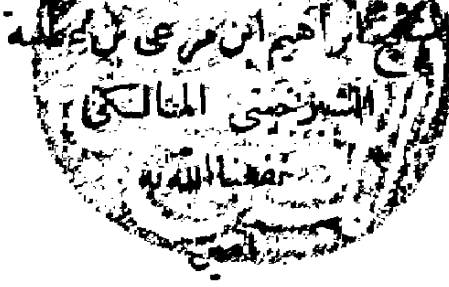 ابراهيم ابن مرعى بن عطية
الشبرخيتى المالكى
نفعنا الله به